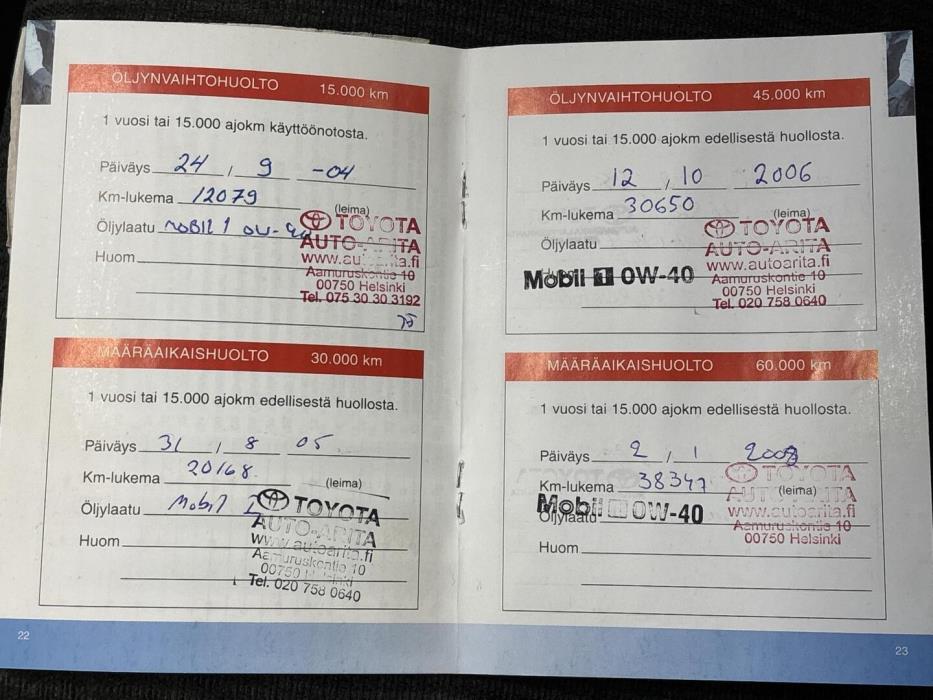 ÖLJYNVAIHTOHUOLTO 15.000 km
1 vuosi tai 15.000 ajokm käyttöönotosta.
Päiväys 24 / 9 -04
Km-lukema 12079
(leima)
Öljylaatu MOBIL 1 0W-40
TOYOTA
AUTO-ARITA
www.autoarita.fi
Huom
Aamuruskontie 10
00750 Helsinki
Tel. 075 30 30 3192
MÄÄRÄAIKAISHUOLTO 30.000 km
1 vuosi tai 15.000 ajokm edellisestä huollosta.
Päiväys 31 / 8 05
Km-lukema 20168.
(leima)
Öljylaatu Mobil 1
TOYOTA
AUTO-ARITA
www.autoarita.fi
Huom
Aamuruskontie 10
00750 Helsinki
Tel. 020 758 0640
22
ÖLJYNVAIHTOHUOLTO 45.000 km
1 vuosi tai 15.000 ajokm edellisestä huollosta.
Päiväys 12 / 10 2006
Km-lukema 30650
(leima)
TOYOTA
Öljylaatu
AUTO-ARITA
www.autoarita.fi
Huom
Mobil 1 0W-40
Aamuruskontie 10
00750 Helsinki
Tel. 020 758 0640
MÄÄRÄAIKAISHUOLTO 60.000 km
1 vuosi tai 15.000 ajokm edellisestä huollosta.
Päiväys 2 / 1 2008
Km-lukema 38347
TOYOTA
(leima)
AUTO-ARITA
Mobil 1 0W-40
Öljylaatu
www.autoarita.fi
Aamuruskontie 10
00750 Helsinki
Huom
23